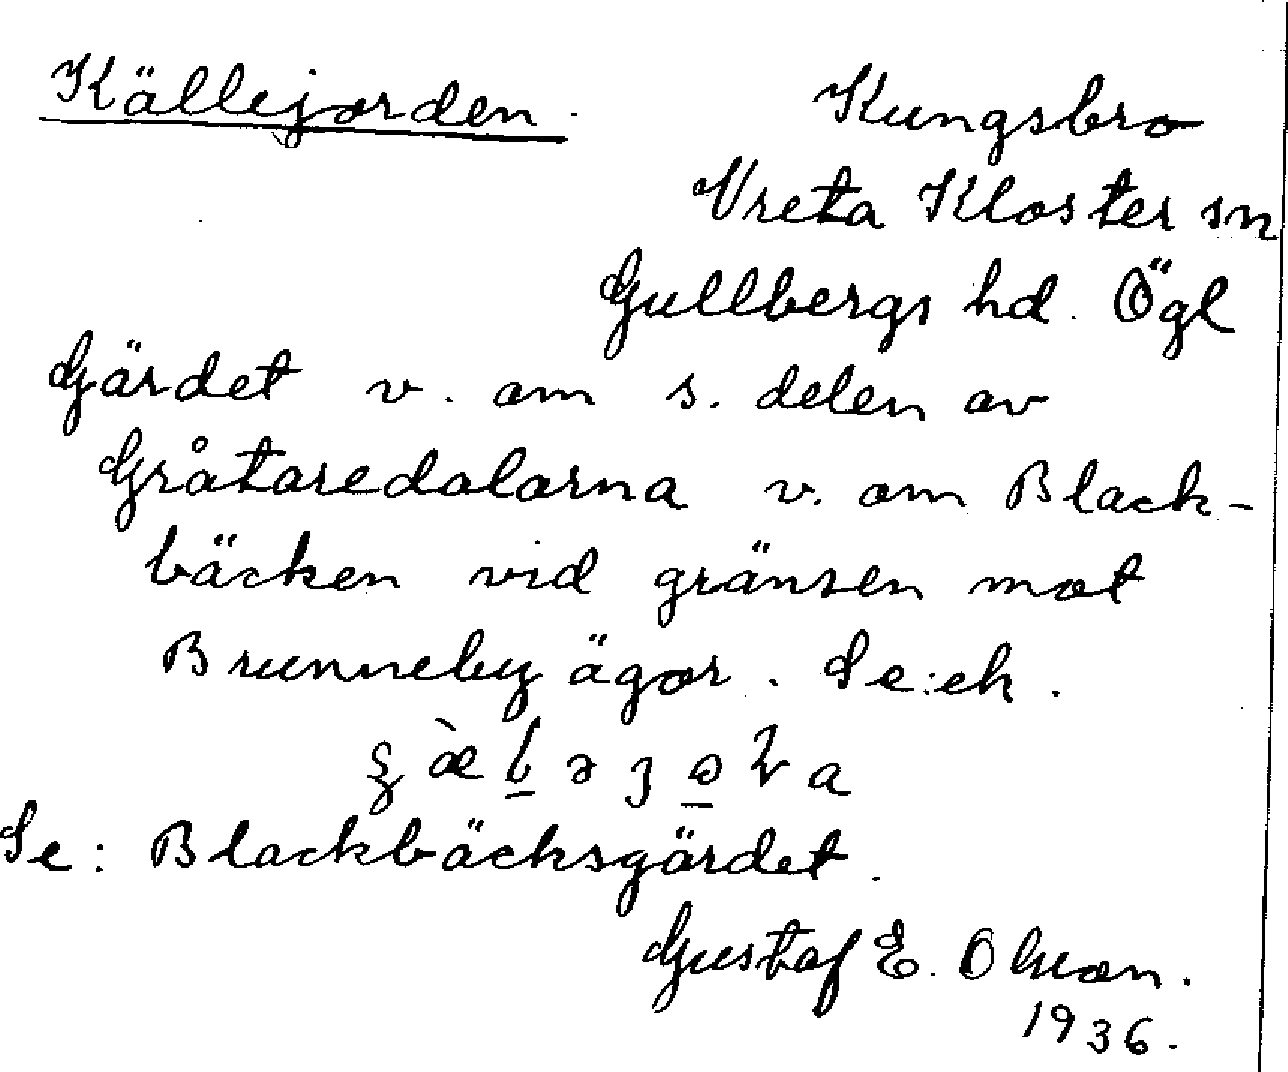 Källejorden.
Kungsbro
Vreta Kloster sn
Gullbergs hd. Ögl
Gärdet v. om s. delen av
Gråtaredalarna v. om Black-
bäcken vid gränsen mot
Brunneby ägor. Se: ek.
Se: Blackbäcksgärdet.
Gustaf E. Olson.
1936.